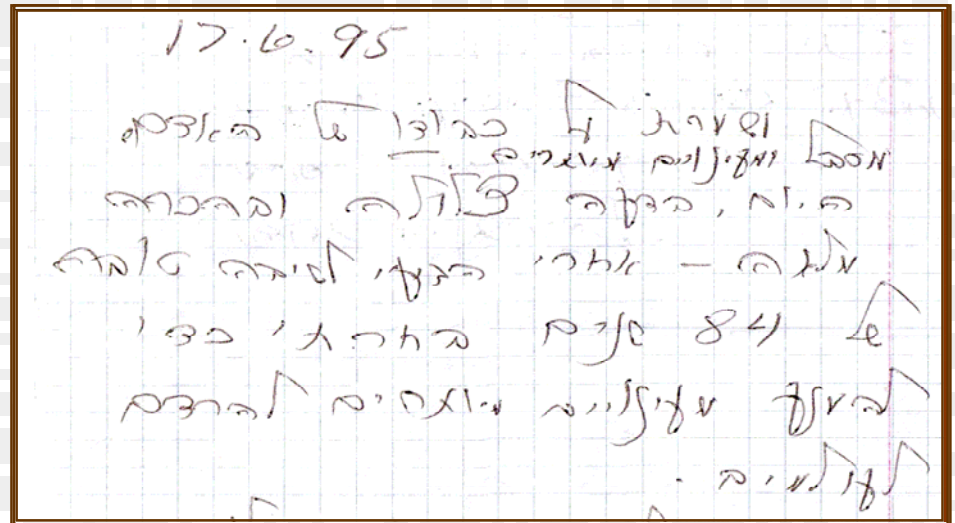 17.6.95
על כבודו של האדם
מסבל ומעינויים מיותרים
היום, בדעה צלולה ובהכרה
מלאה – אחרי הגעי לשיבה טובה
של 84 שנים בחרתי כדי
להמנע מעינויים מיותרים להרדם
לעולמים.